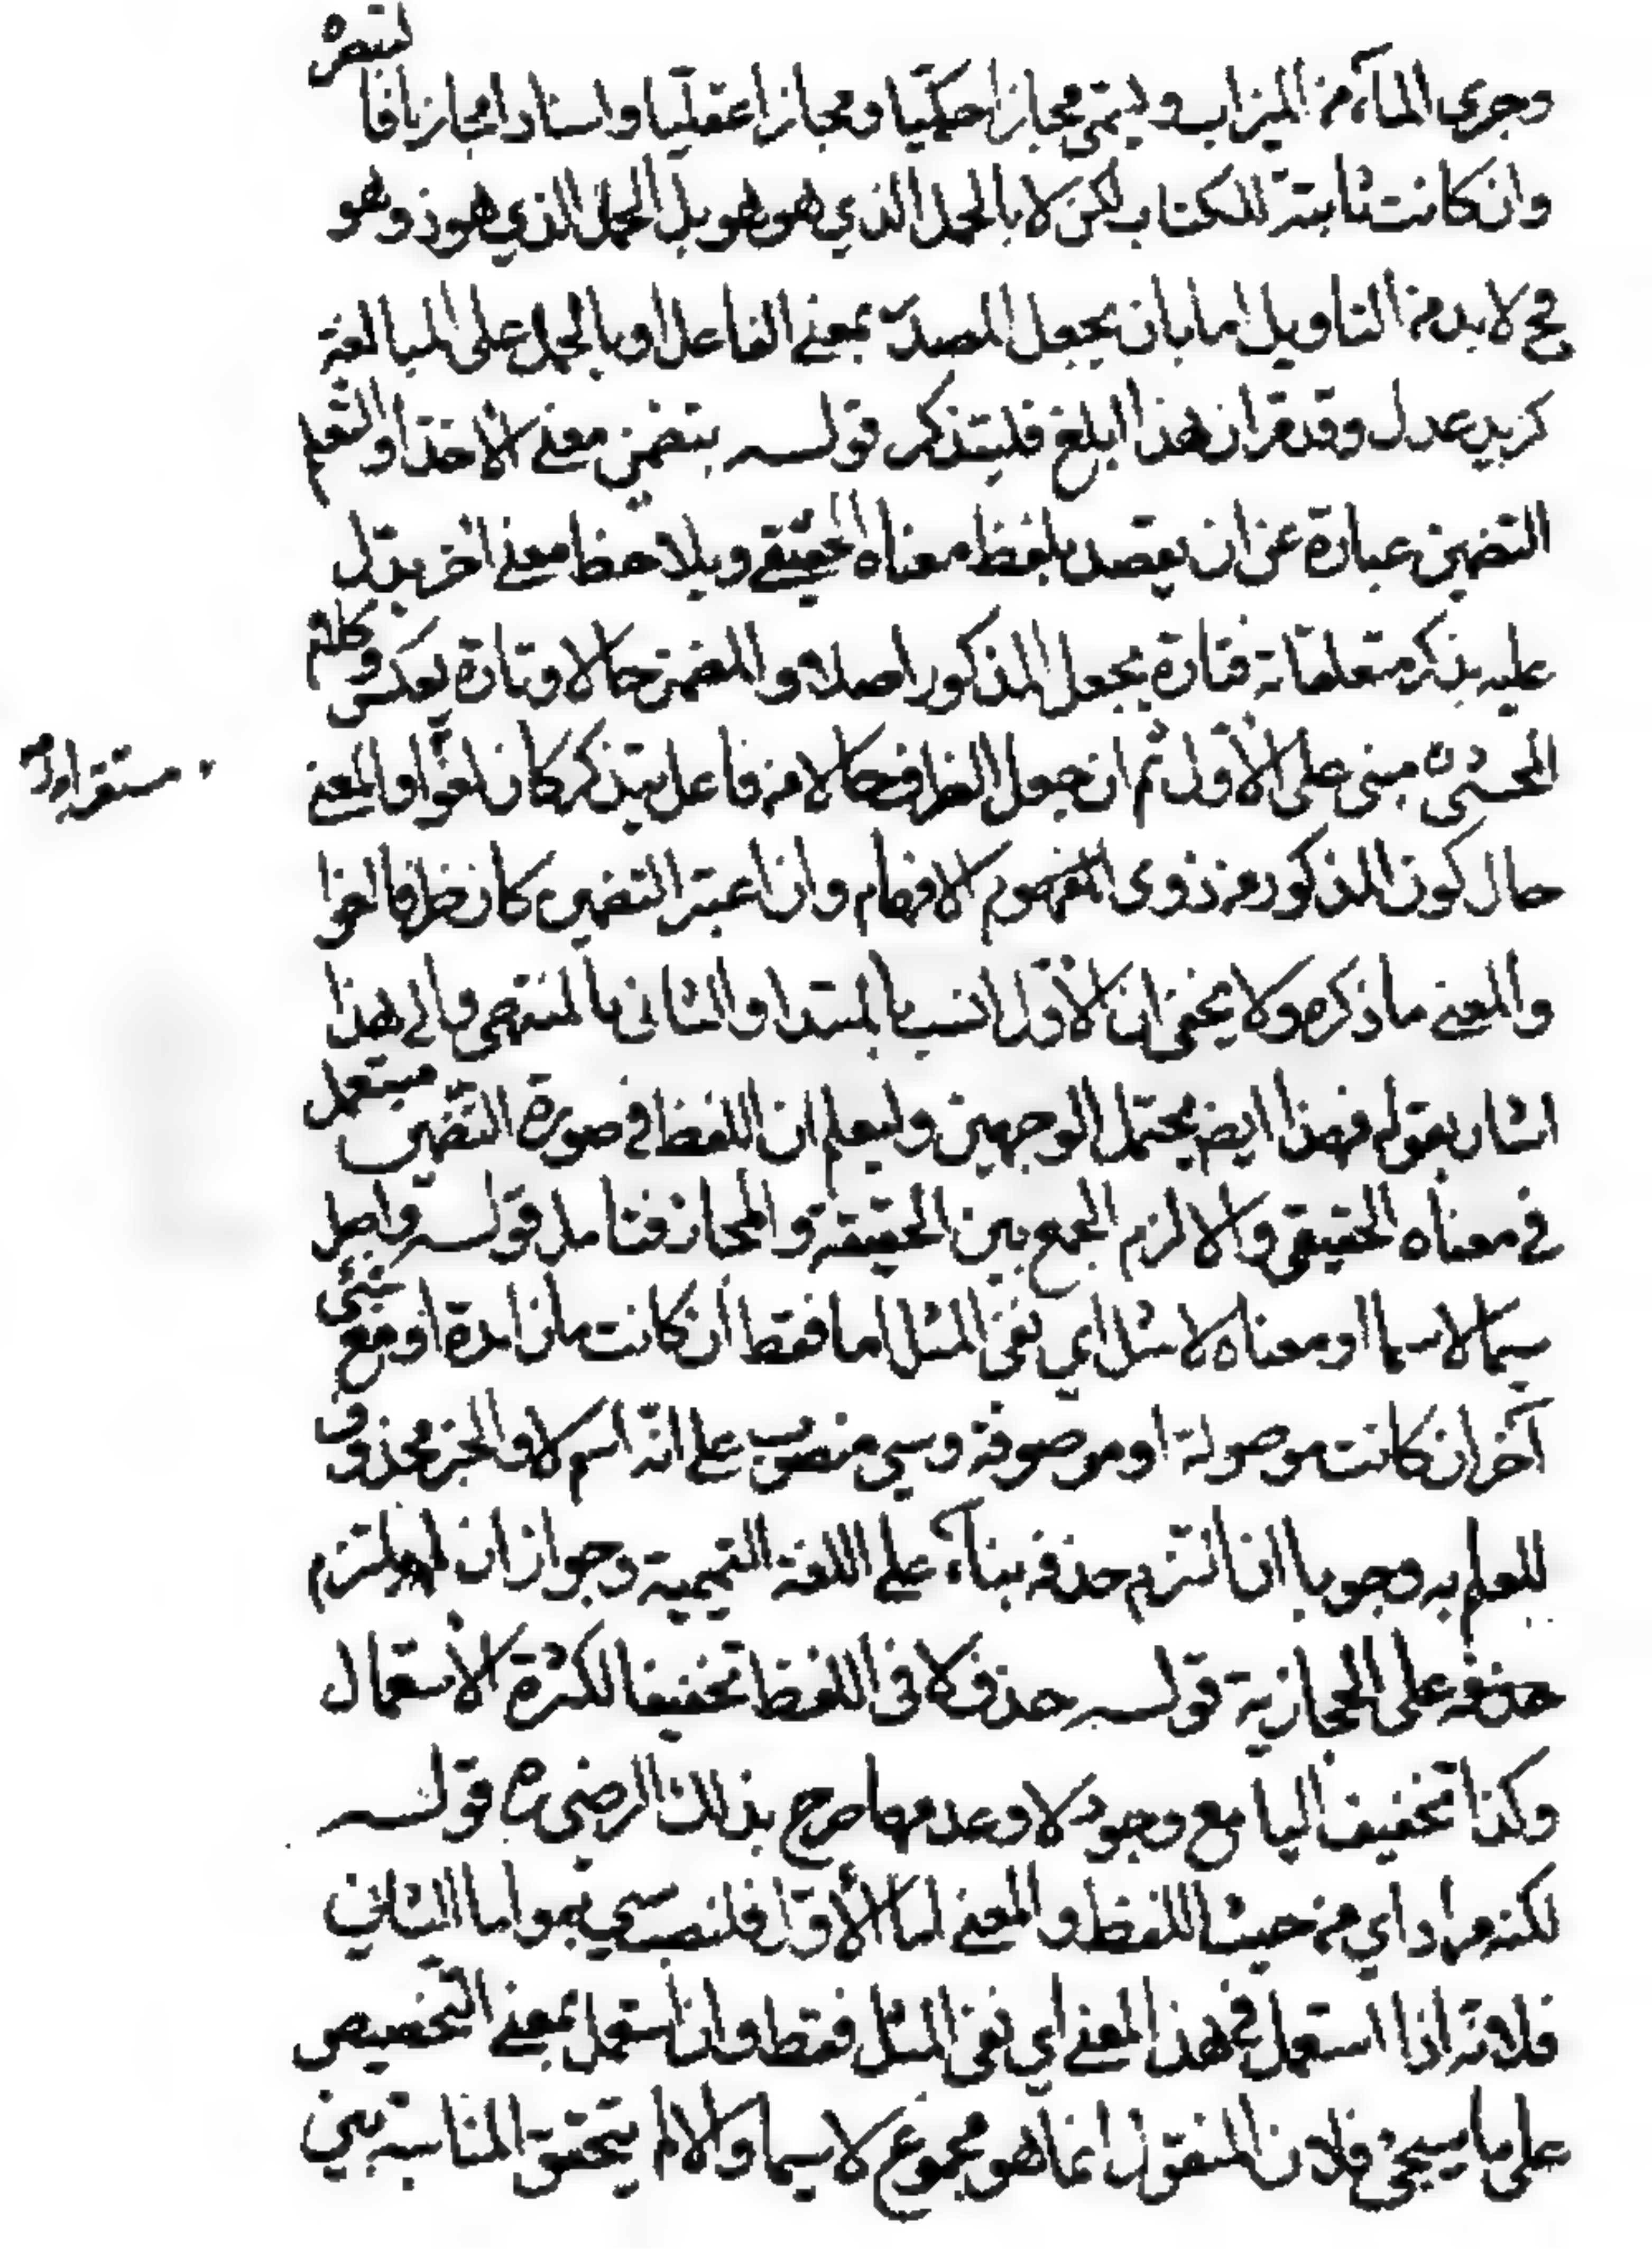 وجرى الماء من الميزاب ويسمى مجازا حكميا ومجازا عقليا واسنادا مجازيا فا لتبصرة
وان كانت ثابتة للكتاب لكن لا بالحمل الذي هو هو بل الحمل الذي هو ذو هو
فح لابد من التاويل اما بان يجعل المصدر بمعنى الفاعل او بالحمل على المبالغة
كزيد عدل وقد قرر ان هذا ابلغ فليتذكر قوله بتضمين معنى الاخذ او التعلم
التضمين عبارة عن ان يقصد بلفظ معناه الحقيقي ويلاحظ معنى اخر يدل
عليه بذكر متعلقاته فتارة يجعل المذكور اصلا والمضمن حالا وتارة يعكس وكلام
المحشي ره مبني على الاول ثم ان جعل الظرف حالا من فاعل يتذكر كان لغوا والمعنى
مستقرا
حال كون المذكور من ذوى الافهام وان اعتبر التضمين كان ظرفا لغوا
والمعنى ما ذكره ولا يخفى ان الاول انسب بالمبتدا والثانى بالمنتهى والى هذا
اشار بقوله فهذا ايض يحتمل الوجهين وليعلم ان اللفظ في صورة التضمين مستعمل
في معناه الحقيقي والا لزم الجمع بين الحقيقة والمجاز فتامل قوله واصل
سيما لاسيما او معناه لا مثل اي نفى المثل اما فقط ان كانت ما زائدة او مع شيء
آخر ان كانت موصولة او موصوفة وسي منصوب على انه اسم لا والخبر محذوف
للعلم به وجوبا ان التزم حذفه بناء على اللغة التميمية وجوازا ان لم يلتزم
حذفه على الحجازية قوله حذف لا فى اللفظ تخفيفا لكثرة الاستعمال
وكذا تخفيف اليا مع وجود لا وعدمها صرح بذلك الرضى ره قوله
لكنه مراد اي من حيث اللفظ والمعنى اما الاول فلنصب سي بهو اما الثاني
فلانه اذا استعمل في هذا المعنى اي نفى المثل فقط واذا استعمل بمعنى التخصيص
على ما سيجئ فلان المنقول انما هو مجموع لا سيما والا لم يتحقق المناسبة بين